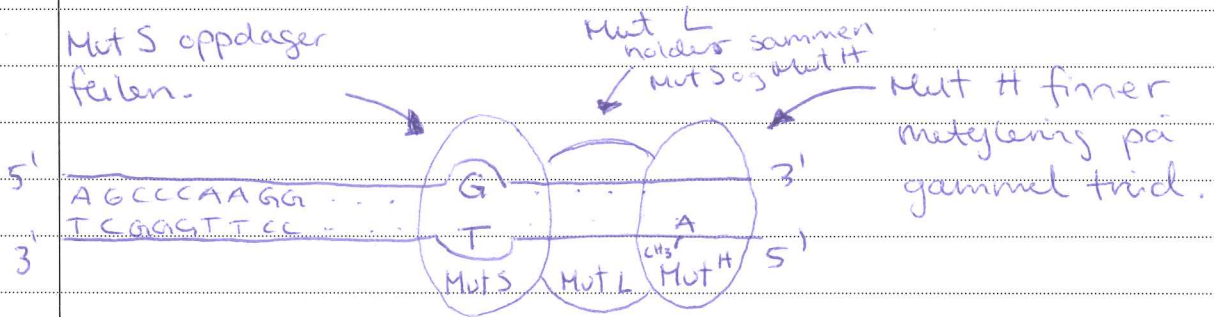 Mut S oppdager
feilen.
Mut L
holder sammen
Mut S og Mut H
Mut H finner
metylering på
gammel tråd.
5' 3'
AGCCCAAGG .... G . . . .
TCGGGTTCC .... T A
3' 5'
CH3
Mut S Mut L Mut H